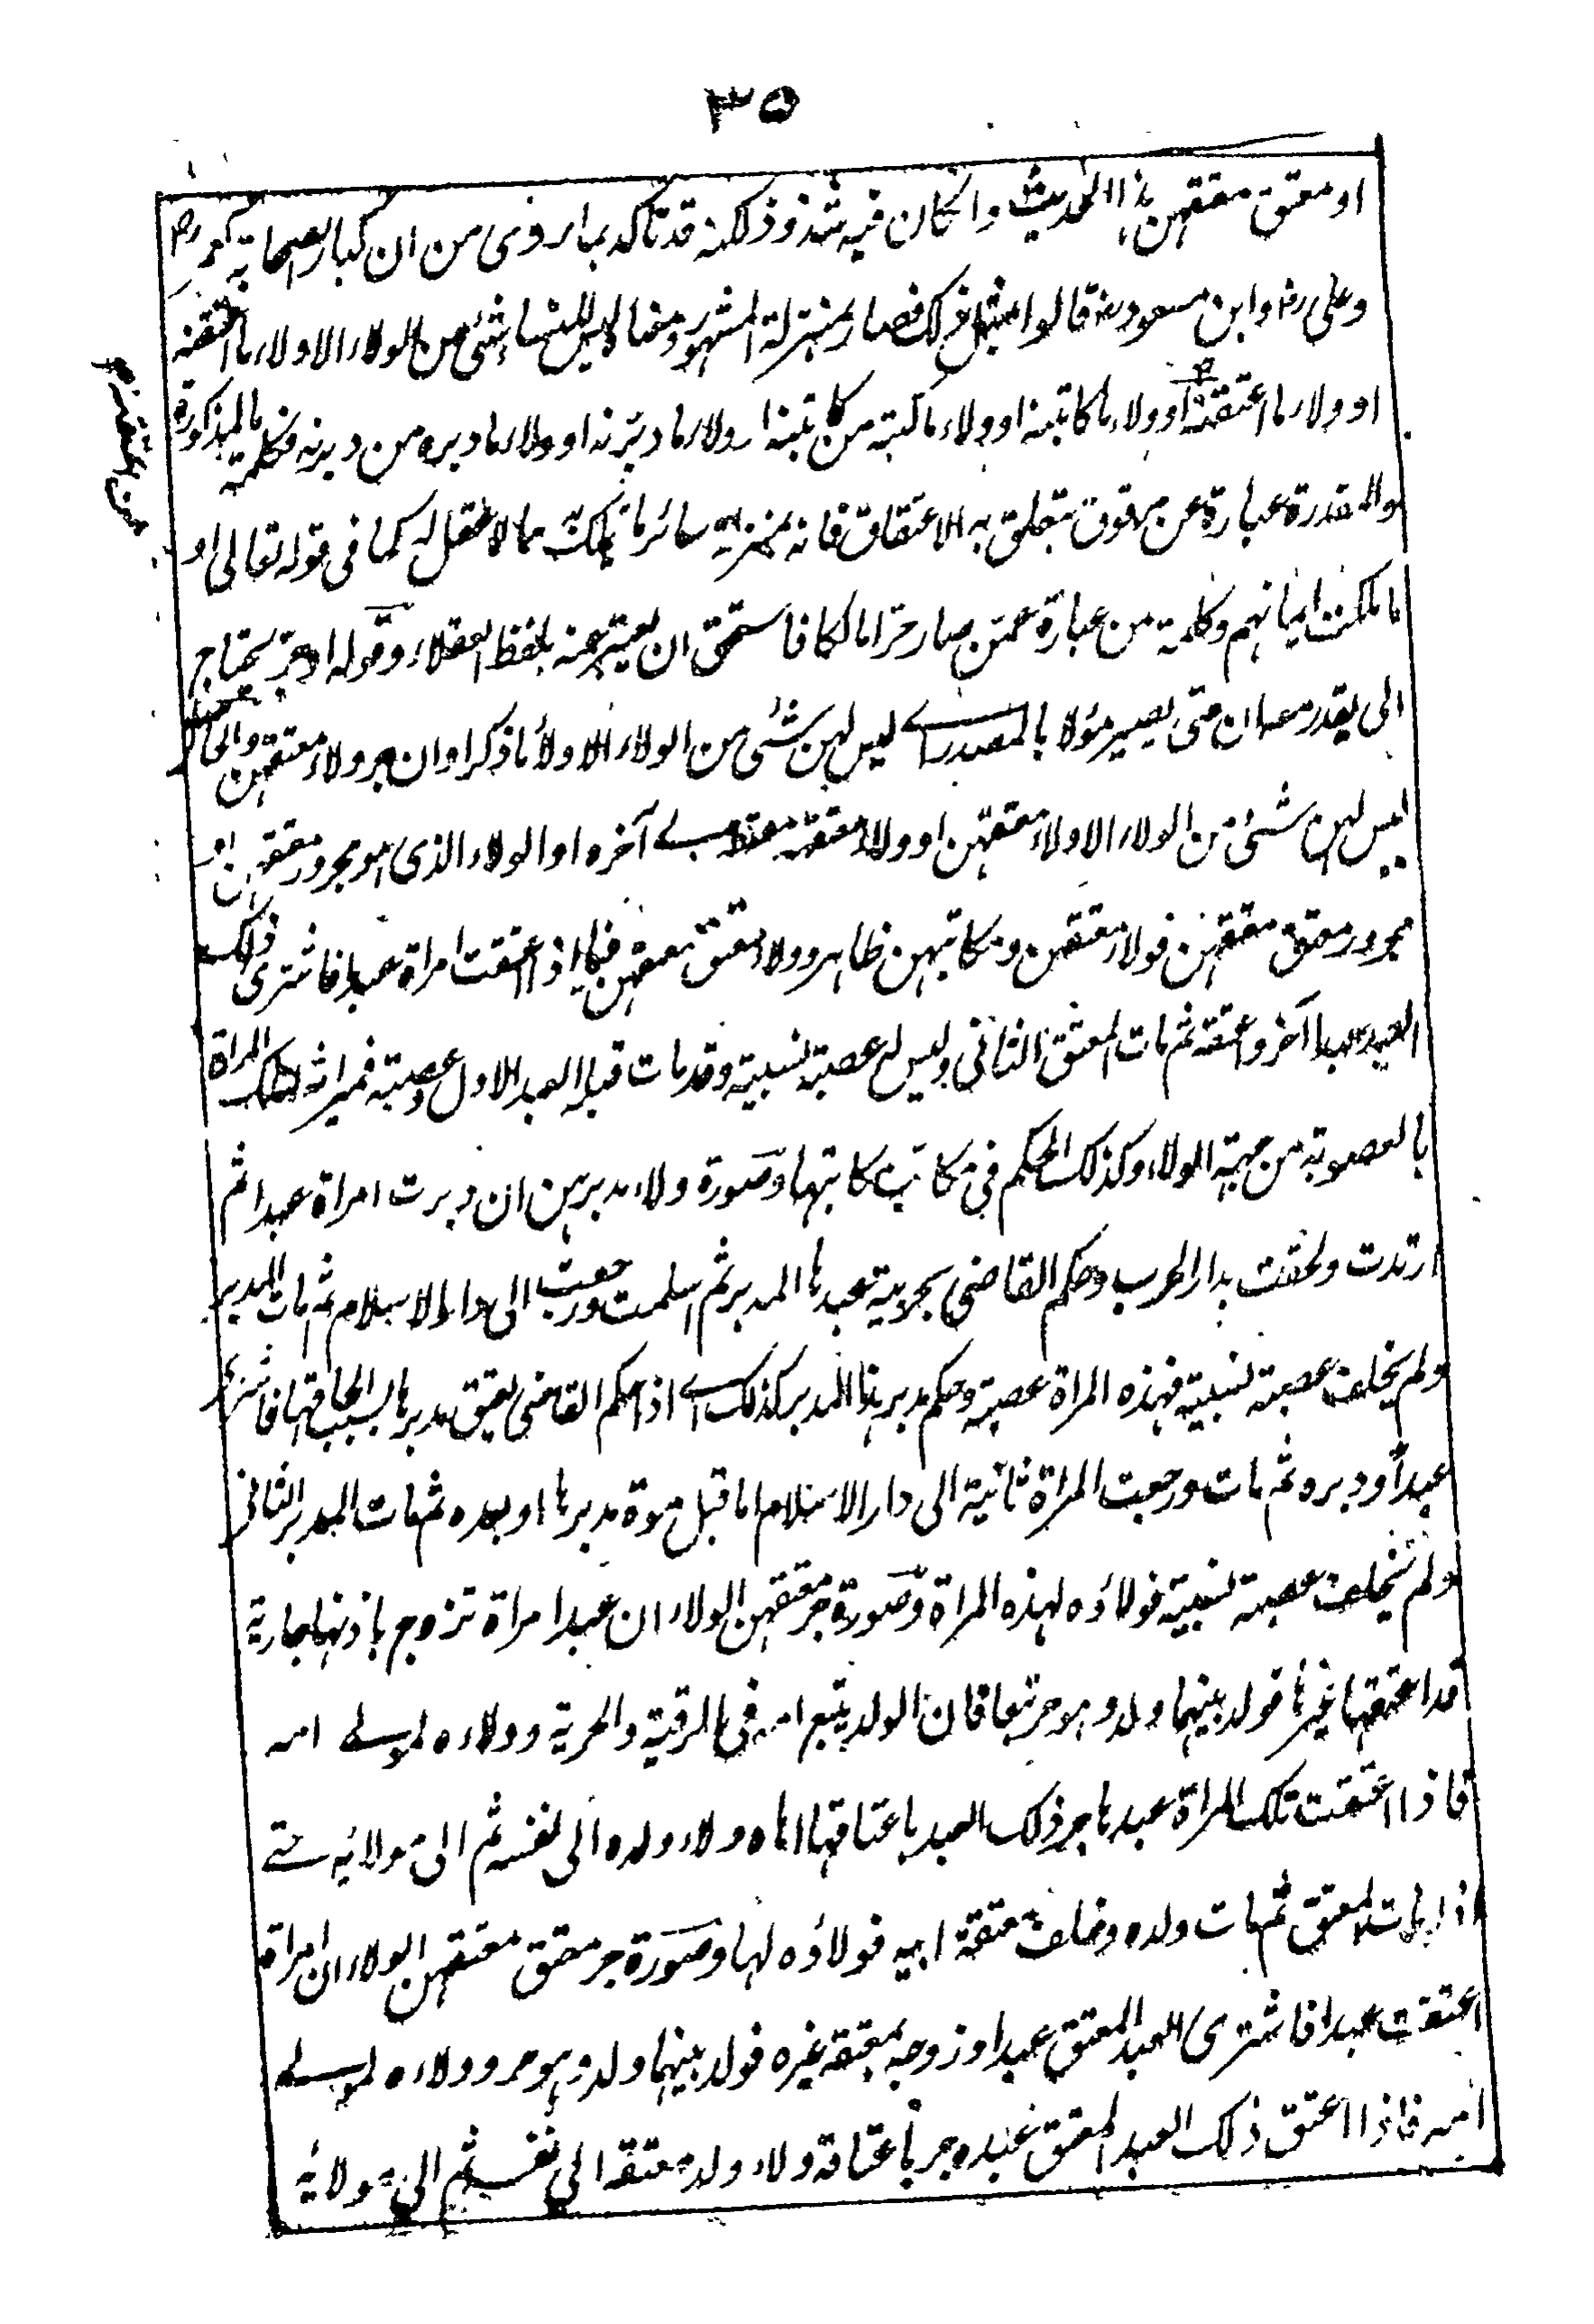 ٣٥
او معتق معتقهن هذا الحديث وان كان فيه شذوذ لكنه قد تأكد بما روى من ان كبار الصحابة كعمر رض
وعلى رض وابن مسعود رض قالوا بمثل ذلك فصار بمنزلة المشهور ومعناه ليس للنساء شئ من الولاء الا ولاء ما اعتقنه
او ولاء ما اعتقنه او ولاء ما كاتبنه او ولاء ما كاتبه من كاتبنه او ولاء ما دبرنه او ولاء ما دبره من دبرنه فكلمة ما المذكورة
والمقدرة عبارة عن مرقوق يتعلق به الاعتاق فانه بمنزلة سائر ما يملك مما لا عقل له كما فى قوله تعالى او
ما ملكت ايمانهم وكلمة من عبارة عمن صار حرا مالكا فاستحق ان يعبر عنه بلفظ العقلاء وقوله او جر يحتاج
الى يقدر معه ان حتى يصير مؤلا بالمصدر اى ليس لهن شئ من الولاء الا ولاء ما ذكر او ان جر ولاء معتقهن والحاصل
ليس لهن شئ من الولاء الا ولاء معتقهن او ولاء معتق معتقهن الى آخره او الولاء الذى هو مجرور معتقهن او
مجرور معتق معتقهن فولاء معتقهن ومكاتبهن ظاهر وولاء معتق معتقهن فيما اذا اعتقت امراة عبدا فاشترى ذلك
العبد عبدا آخر واعتقه ثم مات المعتق الثانى وليس له عصبة نسبية وقد مات قبله العبد الاول وعصبته فميراثه لتلك المراة
بالعصوبة من جهة الولاء وكذلك الحكم فى مكاتب مكاتبها وصورة ولاء مدبرهن ان دبرت امراة عبدا ثم
ارتدت ولحقت بدار الحرب وحكم القاضى بحرية عبدها المدبر ثم اسلمت ورجعت الى دار الاسلام ثم مات المدبر
ولم يخلف عصبة نسبية فهذه المراة عصبته وحكم مدبر هذا المدبر كذلك اى اذا حكم القاضى بعتق مدبرها بسبب لحاقها فاشترى
عبدا ودبره ثم مات ورجعت المراة ثانية الى دار الاسلام اما قبل موة مدبرها او بعده ثم مات المدبر الثانى
ولم يخلف عصبة نسبية فولاؤه لهذه المراة وصورة جر معتقهن الولاء ان عبد امراة تزوج باذنها جارية
قد اعتقها غيرها فولد بينهما ولد وهو حر تبعا فان الولد يتبع امه فى الرقية والحرية وولاءه لمولى امه
فاذا اعتقت تلك المراة عبدها جر ذلك العبد باعتاقها اياه ولاء ولده الى نفسه ثم الى مولائه حتى
اذا مات المعتق ثم مات ولده وخلف معتقة ابيه فولاؤه لها وصورة جر معتق معتقهن الولاء ان امراة
اعتقت عبدا فاشترى العبد المعتق عبدا وزوجه بمعتقة غيره فولد بينهما ولد وهو حر وولاءه لمولى
امه فاذا اعتق ذلك العبد المعتق عبده جر باعتاقه ولاء ولد معتقه الى نفسه ثم الى مولائه